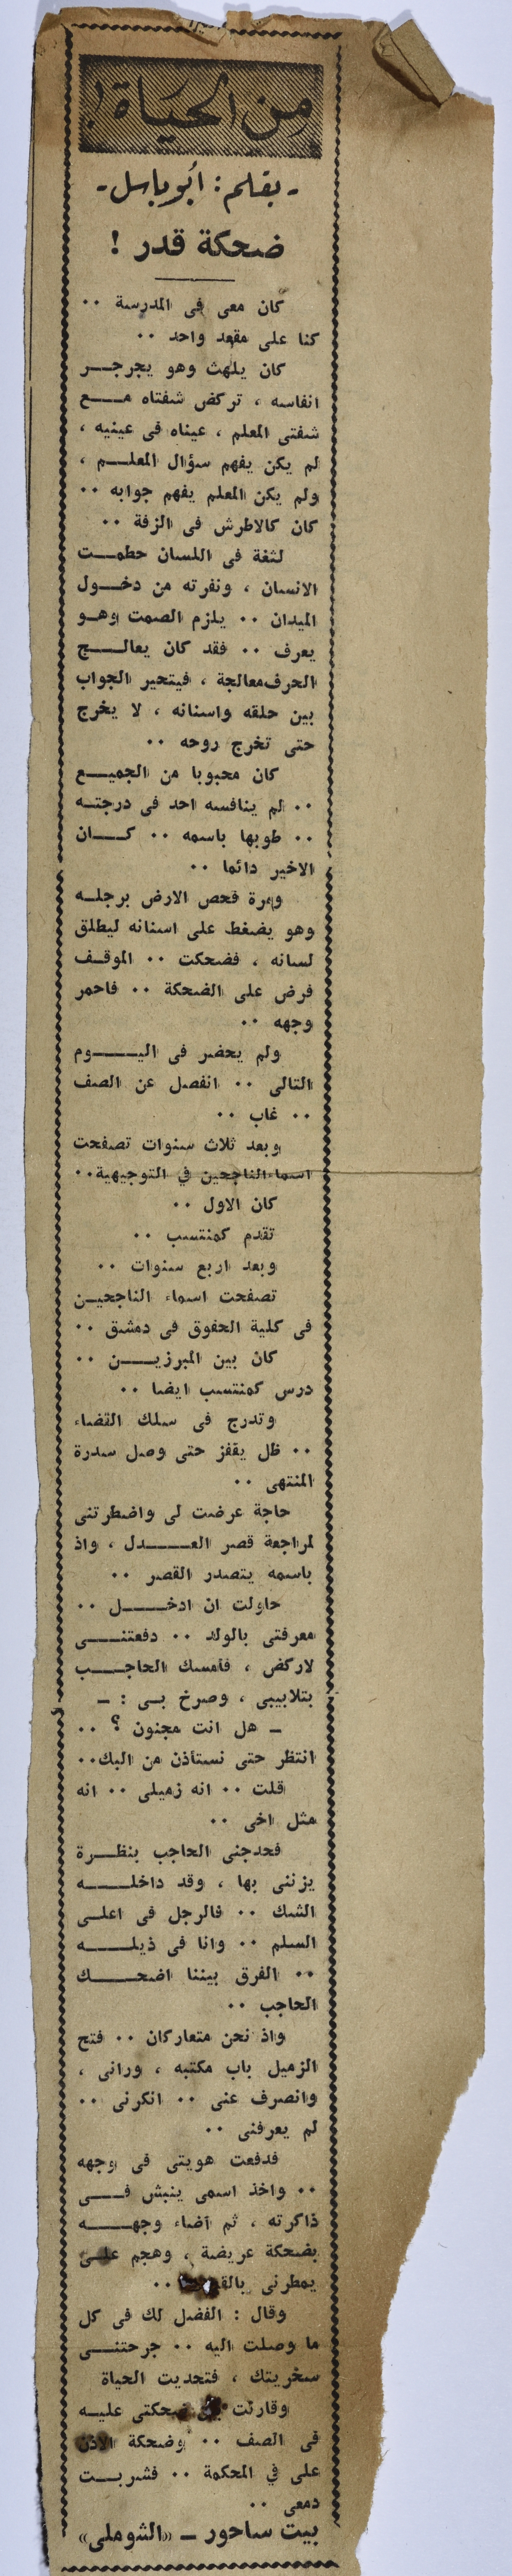 من الحياة !
- بقلم : أبو باسل -
ضحكة قدر !
كان معى فى المدرسة ٠٠
كنا على مقعد واحد ٠٠
كان يلهث وهو يجرجر
انفاسه ، تركض شفتاه مع
شفتى المعلم ، عيناه فى عينيه ،
لم يكن يفهم سؤال المعلم ،
ولم يكن المعلم يفهم جوابه ٠٠
كان كالاطرش فى الزفة ٠٠
لثغة فى اللسان حطمت
الانسان ، ونفرته من دخول
الميدان ٠٠ يلزم الصمت وهو
يعرف ٠٠ فقد كان يعالج
الحرف معالجة ، فيتحير الجواب
بين حلقه واسنانه ، لا يخرج
حتى تخرج روحه ٠٠
كان محبوبا من الجميع
٠٠ لم ينافسه احد فى درجته
٠٠ طوبها باسمه ٠٠ كان
الاخير دائما ٠٠
ومرة فحص الارض برجله
وهو يضغط على اسنانه ليطلق
لسانه ، فضحكت ٠٠ الموقف
فرض على الضحكة ٠٠ فاحمر
وجهه ٠٠
ولم يحضر فى اليوم
التالى ٠٠ انفصل عن الصف
٠٠ غاب ٠٠
وبعد ثلاث سنوات تصفحت
اسماء الناجحين في التوجيهية ٠٠
كان الاول ٠٠
تقدم كمنتسب ٠٠
وبعد اربع سنوات ٠٠
تصفحت اسماء الناجحين
فى كلية الحقوق فى دمشق ٠٠
كان بين المبرزين ٠٠
درس كمنتسب ايضا ٠٠
وتدرج فى سلك القضاء
٠٠ ظل يقفز حتى وصل سدرة
المنتهى ٠٠
حاجة عرضت لى واضطرتنى
لمراجعة قصر العدل ، واذ
باسمه يتصدر القصر ٠٠
حاولت ان ادخل ٠٠
معرفتى بالولد ٠٠ دفعتنى
لاركض ، فأمسك الحاجب
بتلابيبى ، وصرخ بى : ـ
ـ هل انت مجنون ؟ ٠٠
انتظر حتى نستأذن من البك ٠٠
قلت ٠٠ انه زميلى ٠٠ انه
مثل اخى ٠٠
فحدجنى الحاجب بنظرة
يزننى بها ، وقد داخله
الشك ٠٠ فالرجل فى اعلى
السلم ٠٠ وانا فى ذيله
٠٠ الفرق بيننا اضحك
الحاجب ٠٠
واذ نحن متعاركان ٠٠ فتح
الزميل باب مكتبه ، ورانى ،
وانصرف عنى ٠٠ انكرنى ٠٠
لم يعرفنى ٠٠
فدفعت هويتى فى وجهه
٠٠ واخذ اسمى ينبش فى
ذاكرته ، ثم أضاء وجهه
بضحكة عريضة ، وهجم على
يمطرنى ٠٠
وقال : الفضل لك فى كل
ما وصلت اليه ٠٠ جرحتنى
سخريتك ، فتحديت الحياة
وقارنت بين ضحكتى عليه
فى الصف ٠٠ وضحكة الاذن
على في المحكمة ٠٠ فشربت
دمعى ٠٠
بيت ساحور ـ «الشوملى»